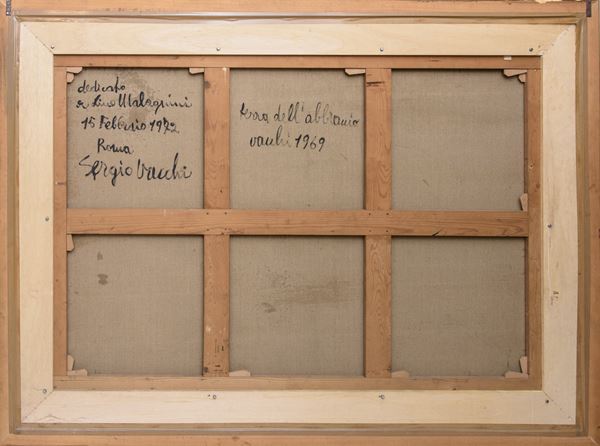 dedicato
a Lino Malagnini
15 Febbraio 1972
Roma
Sergio Vacchi
dell'abbraccio
vacchi 1969